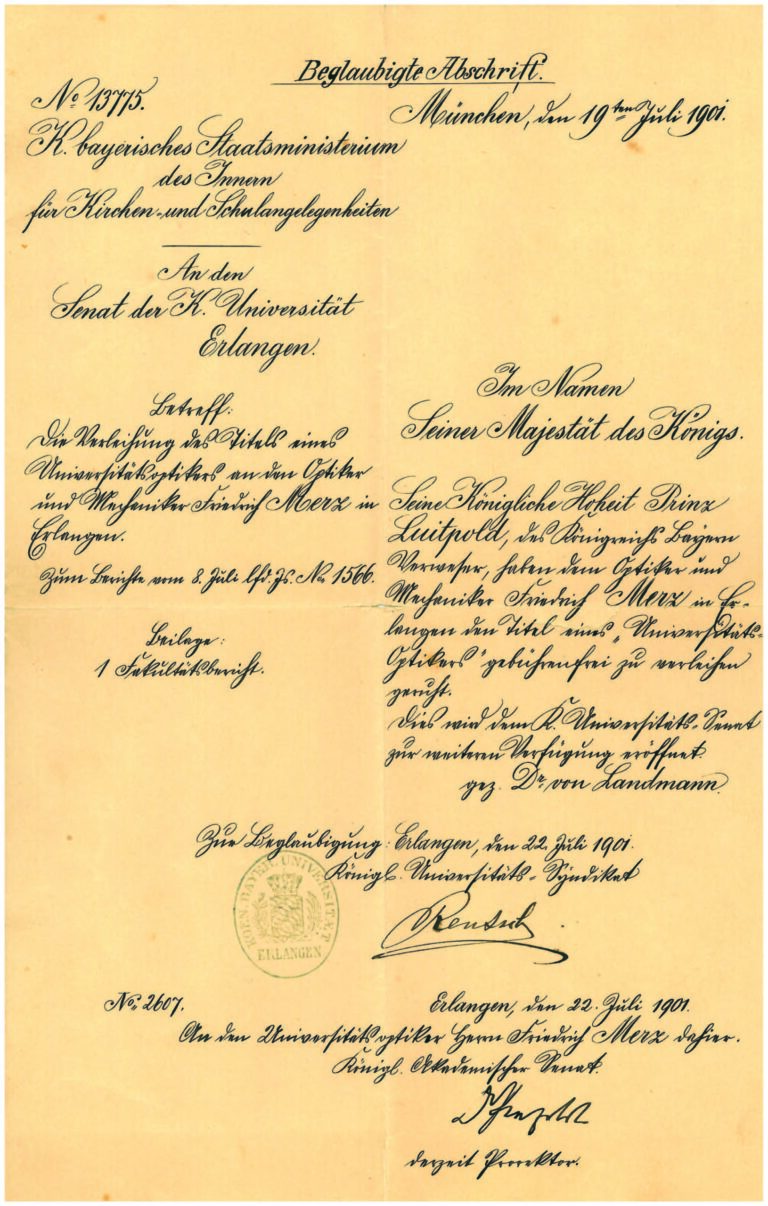 Beglaubigte Abschrift.
No 13775.
München, den 19ten Juli 1901.
K. bayerisches Staatsministerium
des Innern
für Kirchen- und Schulangelegenheiten
An den
Senat der K. Universität
Erlangen.
Betreff:
Die Verleihung des Titels eines
Universitätsoptikers an den Optiker
und Mechaniker Friedrich Merz in
Erlangen.
Zum Berichte vom 8. Juli lfd. Js. No 1566.
Beilage:
1 Fakultätsbericht.
Im Namen
Seiner Majestät des Königs.
Seine Königliche Hoheit Prinz
Luitpold, des Königreichs Bayern
Verweser, haben dem Optiker und
Mechaniker Friedrich Merz in Er-
langen den Titel eines „Universitäts-
Optikers" gebührenfrei zu verleihen
geruht.
Dies wird dem K. Universitäts-Senat
zur weiteren Verfügung eröffnet.
gez. Dr. von Landmann.
Zur Beglaubigung: Erlangen, den 22. Juli 1901.
Königl. Universitäts-Syndikat
Rentsch
KOEN. BAYER. UNIVERSITÄT
ERLANGEN
No. 2607.
Erlangen, den 22. Juli 1901.
An den Universitätsoptiker Herrn Friedrich Merz dahier.
Königl. Akademischer Senat.
derzeit Prorektor.